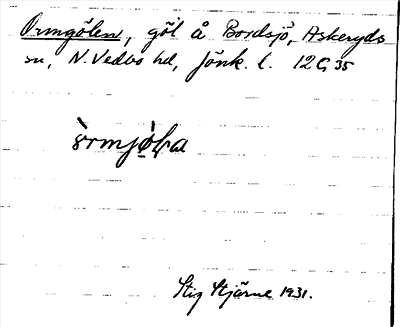 Ormgölen, göl å Bordsjö, Askeryds
sn, N. Vedbo hd, Jönk. l. 12 G, 35
Stig Stjärne 1931.